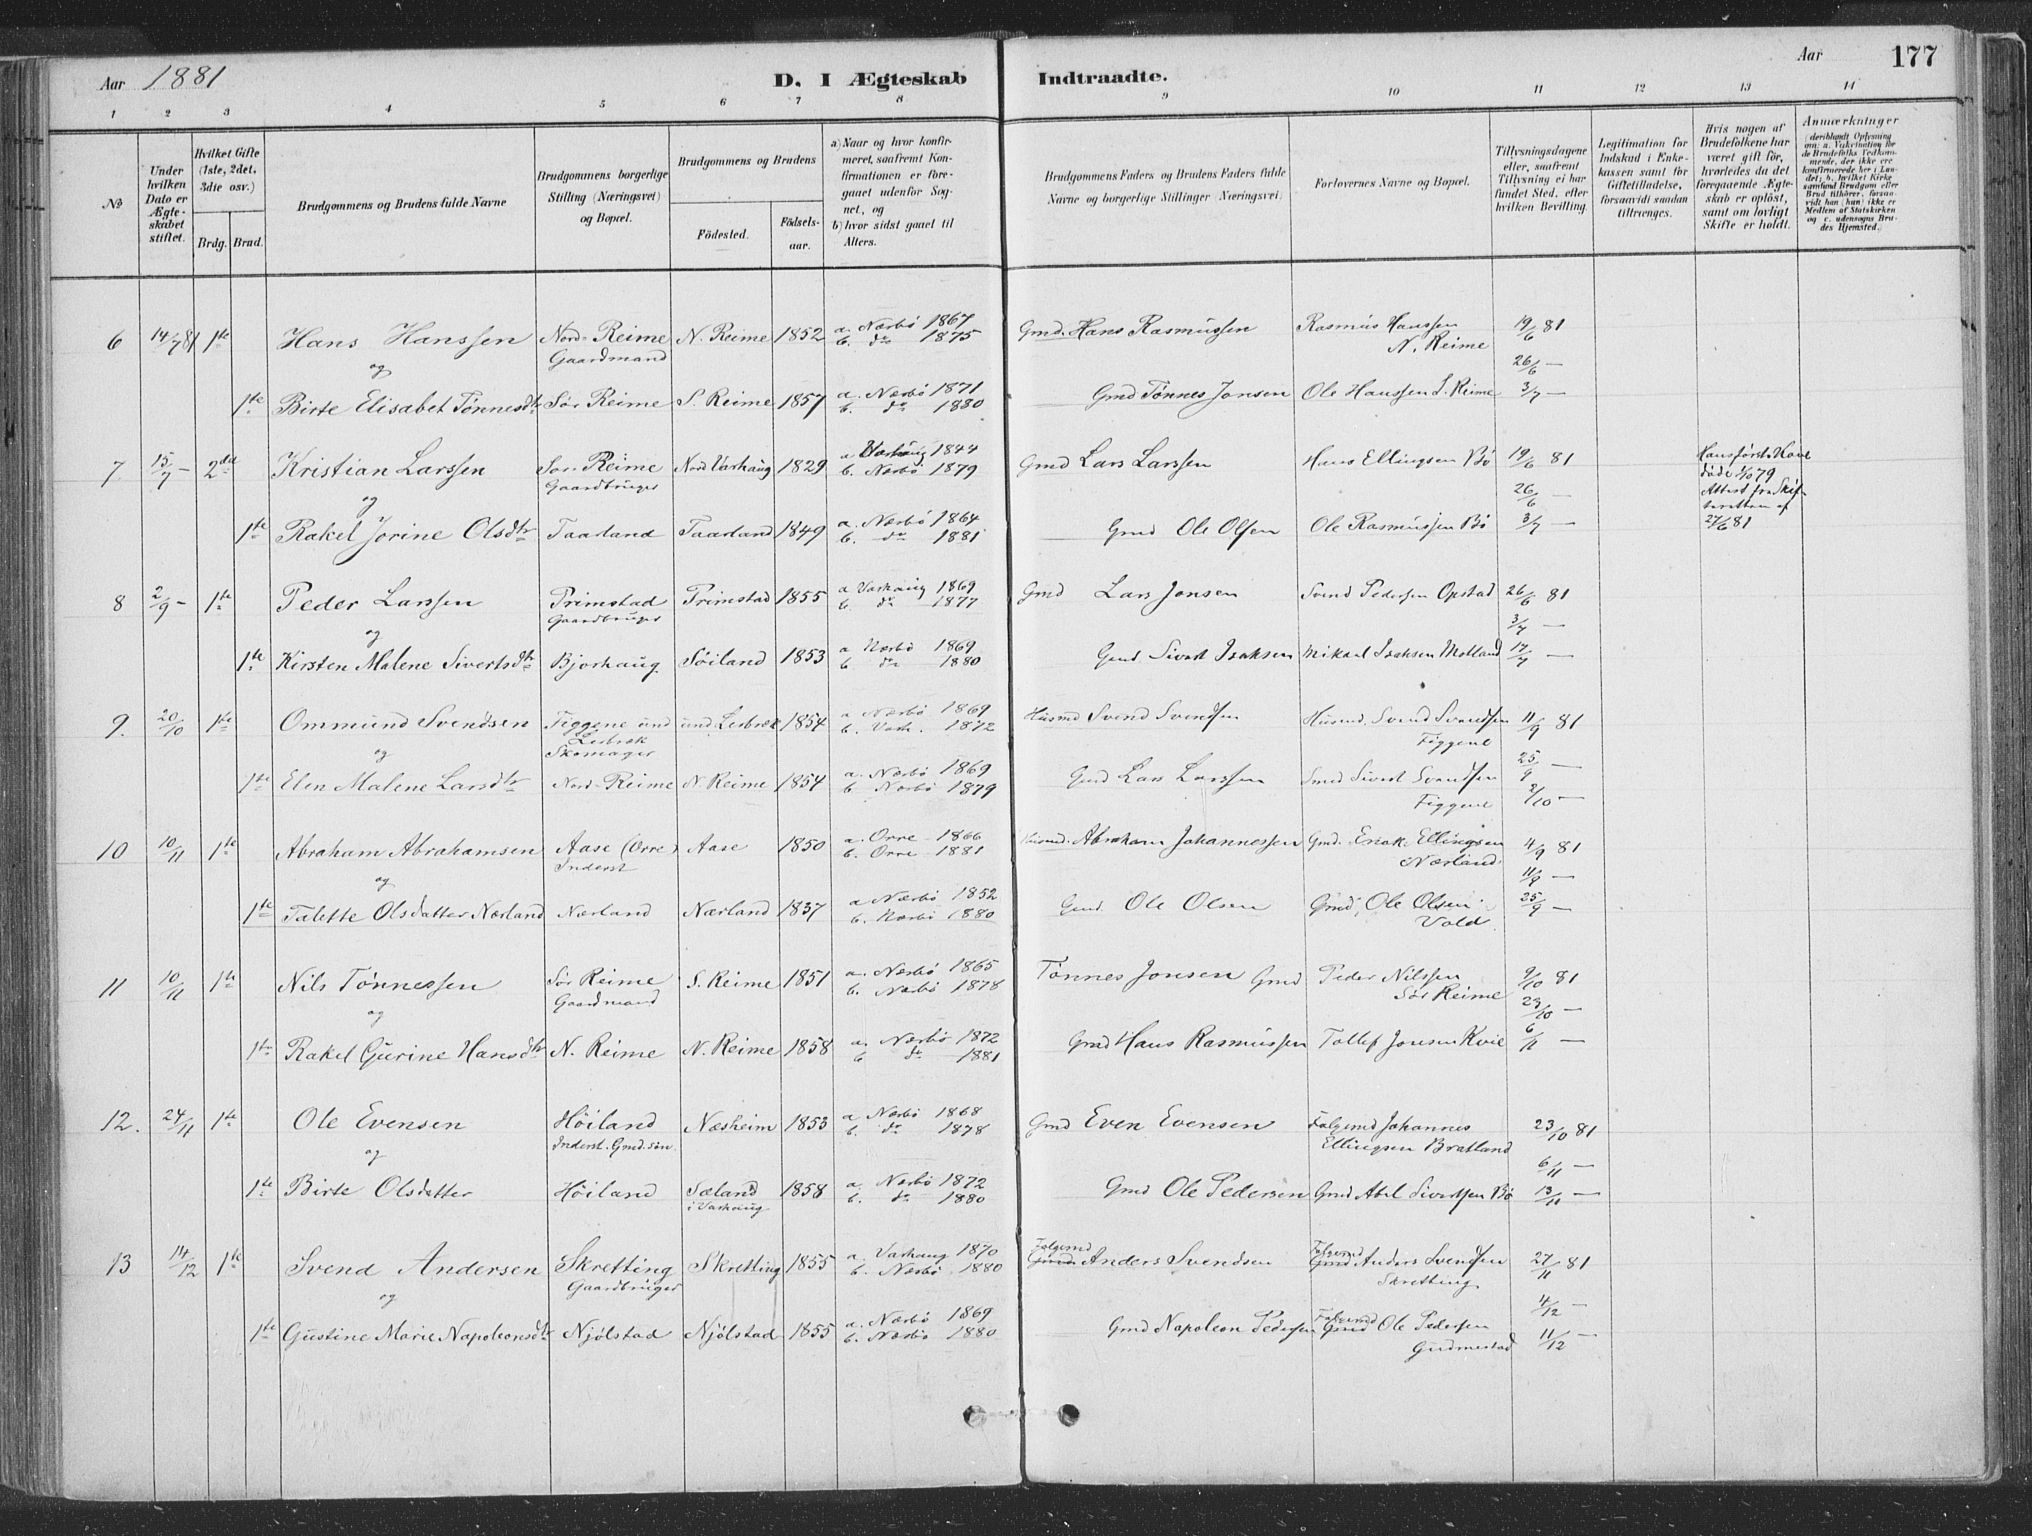 Aar 1881 D. I Ægteskab Indtraadte. Aar 177
1 2 3 4 5 6 7 8 9 10 11 12 13 14
№
Under hvilken Dato er Ægte- skabet stiftet.
Hvilket Gifte (1ste, 2det, 3die osv.)
Brdg. Brud.
Brudgommens og Brudens fulde Navne
Brudgommens borgerlige Stilling (Næringsvei) og Bopæl.
Brudgommens og Brudens
Fødested. Fødsels- aar.
a) Naar og hvor konfir- meret, saafremt Kon- firmationen er fore- gaaet udenfor Sog- net, og
b) hvor sidst gaaet til Alters.
Brudgommens Faders og Brudens Faders fulde Navne og borgerlige Stillinger (Næringsvei)
Forlovernes Navne og Bopæl.
Tillysningsdagene eller, saafremt Tillysning ei har fundet Sted, efter hvilken Bevilling.
Legitimation for Indskud i Enke- kassen samt for Giftetilladelse, forsaavidt saadan tiltrænges.
Hvis nogen af Brudefolkene har været gift før, hvorledes da det foregaaende Ægte- skab er opløst, samt om lovligt Skifte er holdt.
Anmærkninger
6 14/7 81 1ste Hans Hanssen Nord-Reime N. Reime 1852 a. Nærbø 1867 Gmd. Hans Rasmussen Rasmus Hanssen 19/6 81
og Gaardmand b. do 1875 N. Reime 26/6 —
1ste Birte Elisabet Tønnesdtr Sør Reime S. Reime 1857 a. Nærbø 1871 Gmd Tønnes Jonsen Ole Hanssen S. Reime 3/7 —
b. do 1880
7 15/7 — 2det Kristian Larssen Sør Reime Nord Varhaug 1829 a Varhaug 1844 Gmd Lars Larssen Hans Ellingsen Bø 19/6 81 Hans første Kone
og Gaardbruger b. Nærbø 1879 26/6 — døde 1/10 79
1ste Rakel Jorine Olsdtr Taarland Taarland 1849 a. Nærbø 1864 Gmd Ole Olsen Ole Rasmussen Bø 3/7 — Attest fra Skif-
b. do 1881 teretten af
27/6 81
8 2/9 — 1ste Peder Larssen Primstad Primstad 1855 a Varhaug 1869 Gmd Lars Jonsen Svend Pedersen Opstad 26/6 81
og Gaardbruger b. do 1877 3/7 —
1ste Kirsten Malene Sivertsdtr Bjorhaug Søiland 1853 a Nærbø 1869 Gmd Sivert Isaksen Mikael Isaksen Motland 17/7 —
b do 1880
9. 20/10 1ste Ommund Svendsen Figgene und und. Lerbræk 1854 a Nærbø 1869 Husmd Svend Svendsen Husmd. Svend Svendsen 11/9 81
og Lerbræk b. Varh. 1872 Figgene
Skomager 25/9 —
1ste Elen Malene Larsdtr Nord-Reime N. Reime 1854 a. Nærbø 1869 Gmd Lars Larssen Smed Sivert Svendsen
b. Nærbø 1879 Figgene 2/10 —
10 10/11 1ste Abraham Abrahamsen Aase (Orre) Aase 1850 a. Orre 1866 Husmd. Abraham Johannessen Gmd. Enok Ellingsen 4/9 81
og Inderst b. Orre 1881 Nærland 11/9 —
1ste Talette Olsdatter Nærland Nærland Nærland 1837 a Nærbø 1852 Gmd. Ole Olsen Gmd. Ole Olsen 25/9 —
b. Nærbø 1880 Vold
11 10/11 1ste Nils Tønnessen Sør Reime S. Reime 1851 a. Nærbø 1865 Tønnes Jonsen Gmd Peder Nilssen 9/10 81
og Gaardmand b. Nærbø 1878 Sør Reime 23/10 —
1ste Rakel Gurine Hansdtr N. Reime N. Reime 1858 a. Nærbø 1872 Gmd Hans Rasmussen Tollef Jonsen Kvie 6/11 —
b do 1881
12. 24/11 1ste Ole Evensen Høiland Næsheim 1853 a Nærbø 1868 Gmd Even Evensen Folgemd Johannes 23/10 81
og Inderst. Gmd.søn. b. do 1878 Ellingsen Bratland 6/11 —
1ste Birte Olsdatter Høiland Sæland 1858 a. Nærbø 1872 Gmd Ole Pedersen Gmd Abel Sivertsen Bø 13/11 —
i Varhaug b. do 1880
13 14/12 1ste Svend Andersen Skretting Skretting 1855 a. Varhaug 1870 Folgemd Gmd Anders Svendsen Folgemd Gmd Anders Svendsen 27/11 81
og Gaardbruger b. Nærbø 1880 Skretting 4/12 —
1ste Gustine Marie Napoleonsdtr Njølstad Njølstad 1855 a. Nærbø 1869 Gmd Napoleon Pedersen Folgemd Gmd Ole Pedersen 11/12 —
b. Nærbø 1880 Gudmestad